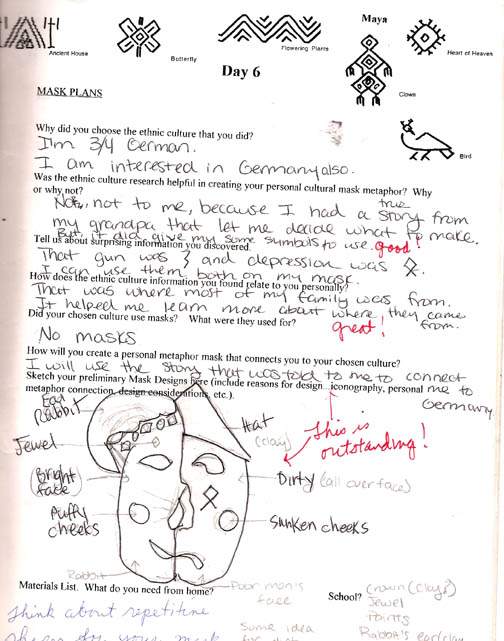 Maya
Ancient House
Butterfly
Flowering Plants
Heart of Heaven
Clown
Bird
Day 6
MASK PLANS
Why did you choose the ethnic culture that you did?
I'm 3/4 German.
I am interested in Germany also.
Was the ethnic culture research helpful in creating your personal cultural mask metaphor? Why
or why not?
Not, not to me, because I had a true story from
my grandpa that let me decide what to make.
But it did give my some sumbols to use. good!
Tell us about surprising information you discovered
That gun was and depression was
I can use them both on my mask.
How does the ethnic culture information you found relate to you personally?
That was where most of my family was from.
It helped me learn more about where they came from.
Did your chosen culture use masks? What were they used for?
great!
No masks
How will you create a personal metaphor mask that connects you to your chosen culture?
I will use the story that was told to me to connect
me to Germany
Sketch your preliminary Mask Designs here (include reasons for design...iconography, personal
metaphor connection, design considerations, etc.).
Ear Rabbit
Hat
(clay)
This is outstanding!
Jewel
Bright
face
Dirty (all over face)
Puffy
cheeks
Sunken cheeks
Rabbit
Poor man's
face
Materials List. What do you need from home?
School?
Crown (clay?)
Jewel
Paints
Rabbit's ear/clay
Think about repetitive
for your mask
Some idea